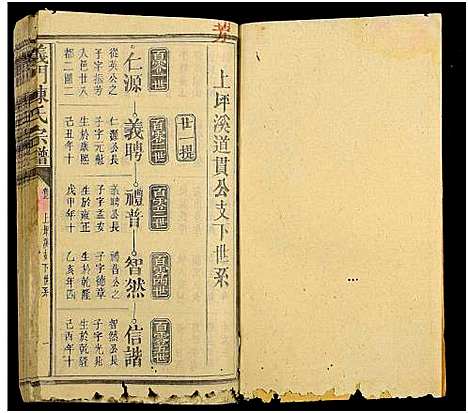 芳
上坪溪道貫公支下世系
廿一提
百零一世
仁源
從英公之
子字振芳
入邑廿八
都二圖二
百零二世
義聘
仁源公長
子字元魁
生於康熙
己丑年十
百零三世
禮普
義聘公長
子字孟安
生於雍正
戊申年十
百零四世
智然
禮普公之
子字德章
生於乾隆
乙亥年四
百零五世
信諧
智然公長
子字光兆
生於乾隆
己酉年十
義門陳氏宗譜
上坪溪支下世系
一